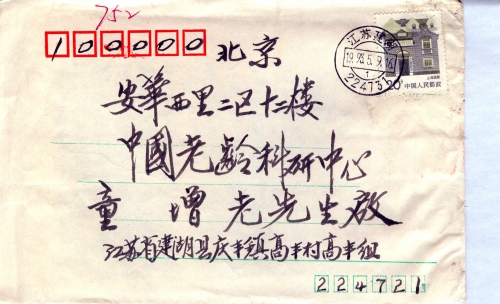 752
100000
北京
安華西里二区十二楼
中國老齡科研中心
童增老先生啟
江苏省建湖县庆丰镇高丰村高丰组
224721
江苏建湖
20
中国人民邮政
上海民居